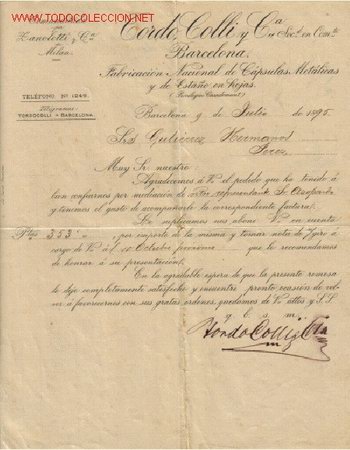 todocoleccion.net
Zanoletti y Cia
Milán
Tordo, Colli y Cia Soc. en Comta
Barcelona.
Fabricación Nacional de Cápsulas Metálicas
y de Estaño en Hojas.
TELÉFONO Nº 1249.
Telegramas:
TORDOCOLLI - BARCELONA.
Barcelona 9 de Julio de 1895.
Srs Gutierrez Hermanos
Jerez
Muy Sr. nuestro
Agradecemos á V. el pedido que ha tenido á
bien confiarnos por mediación de representante Sr
y tenemos el gusto de acompañarle la correspondiente factura.
Le suplicamos nos abone V. en cuenta
Ptas 353 por importe de la misma y tomar nota de giro á
cargo de V. á 1º Octubre proximo que le recomendamos
de honrar á su presentación.
En la agradable espera de que la presente remesa
le deje completamente satisfecho y encuentre pronto ocasión de vol-
ver á favorecernos con sus gratas ordenes, quedamos de V. attos y S. S.
q. b. s. m.
Tordo Colli y Cia